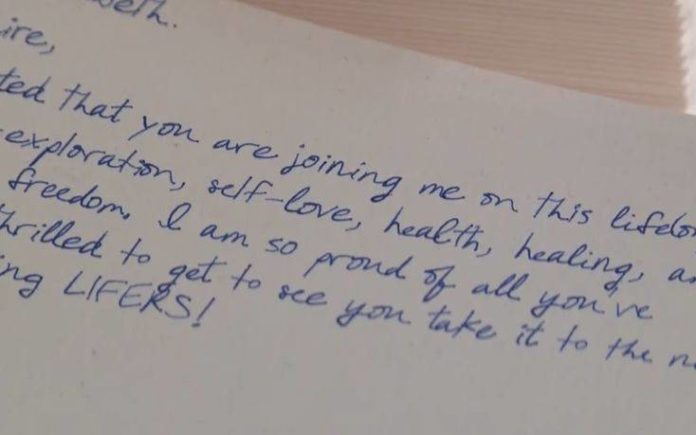 ire,
ted that you are joining me on this lifelo
exploration, self-love, health, healing, a
freedom. I am so proud of all you've
thrilled to get to see you take it to the n
ing LIFERS!